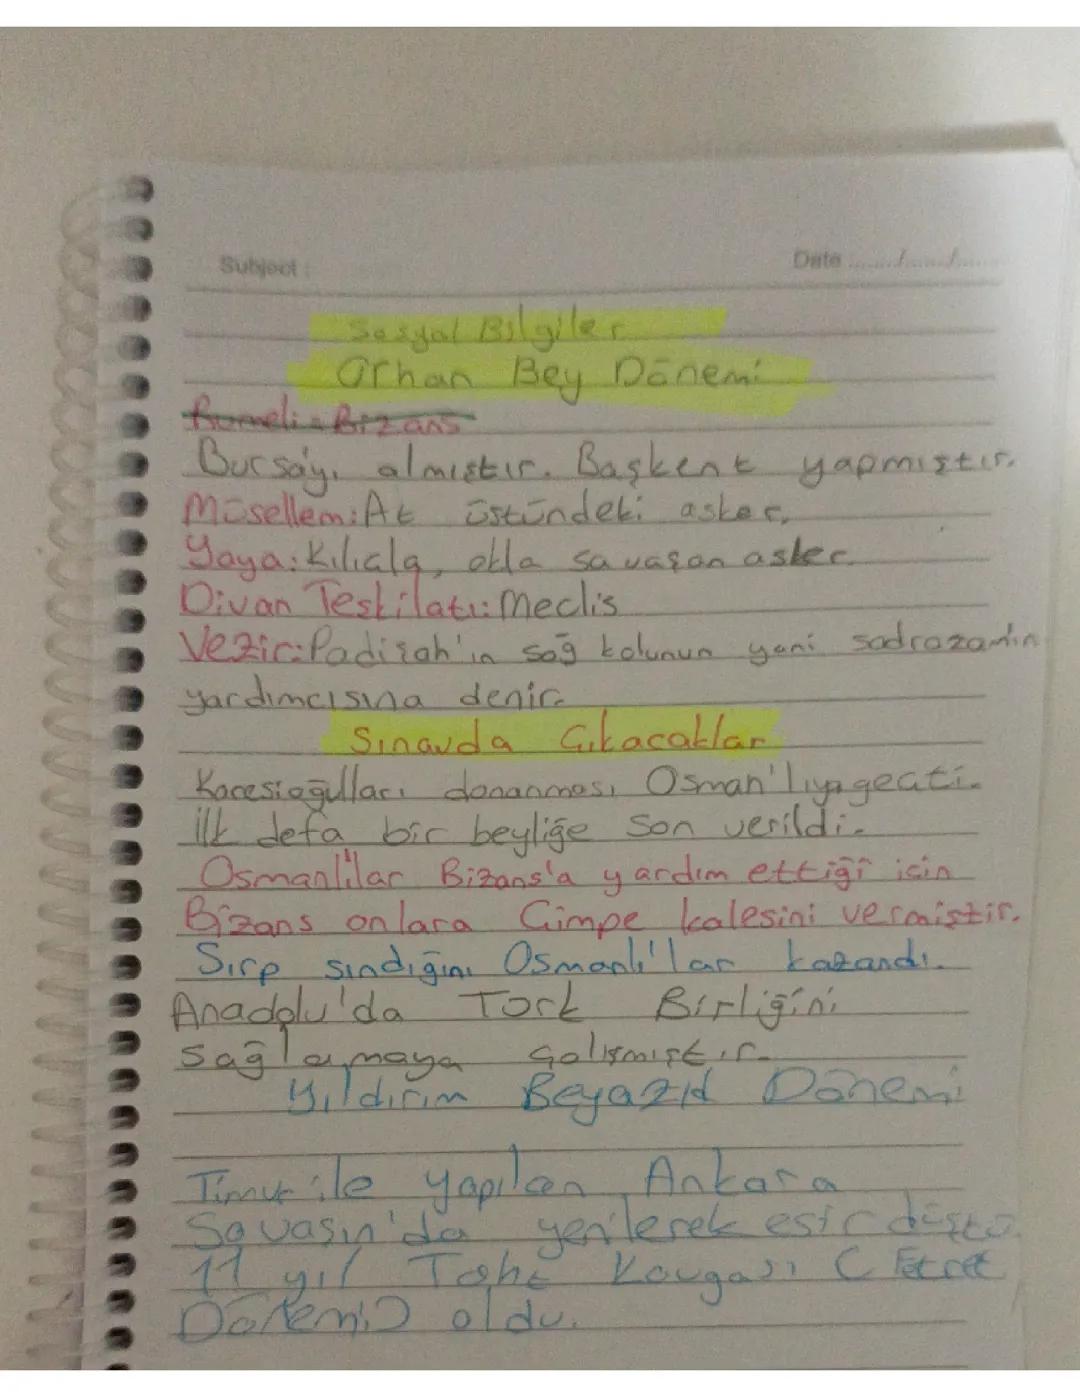 Subject :
Date ....../....../......
Sosyal Bilgiler
Orhan Bey Dönemi
Rumeli = Bizans
Bursa'yı almıştır. Başkent yapmıştır.
Müsellem: At üstündeki asker.
Yaya: Kılıçla, okla savaşan asker.
Divan Teşkilatı: Meclis
Vezir: Padişah'ın sağ kolunun yani sadrazamın
yardımcısına denir.
Sınavda Çıkacaklar
Karesioğulları donanması Osman'lıya geçti.
İlk defa bir beyliğe son verildi.
Osmanlılar Bizans'a yardım ettiği için
Bizans onlara Çimpe kalesini vermiştir.
Sırp sındığını Osmanlı'lar kazandı.
Anadolu'da Türk Birliğini
sağlamaya çalışmıştır.
Yıldırım Beyazıd Dönemi
Timur ile yapılan Ankara
Savaşın'da yenilerek esir düştü.
11 yıl Taht Kavgası ( Fetret
Dönemi) oldu.